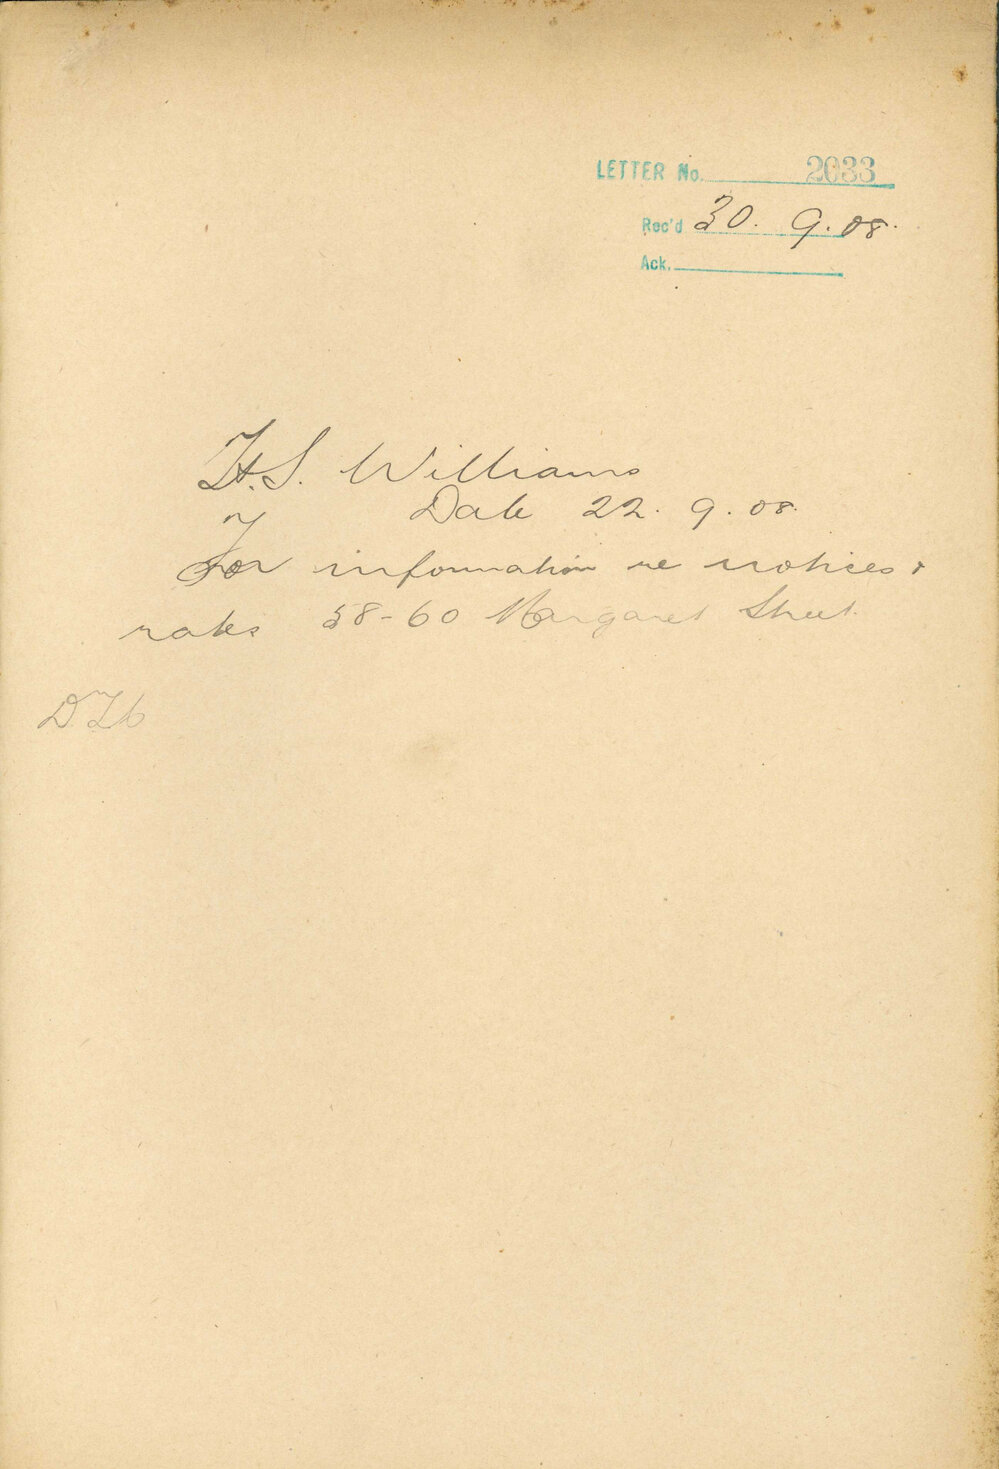 LETTER No. 2033
Rec'd 30. 9. 08.
Ack.
H.S. Williams
Date 22. 9. 08.
For information re notices &
rates 58-60 Margaret Street